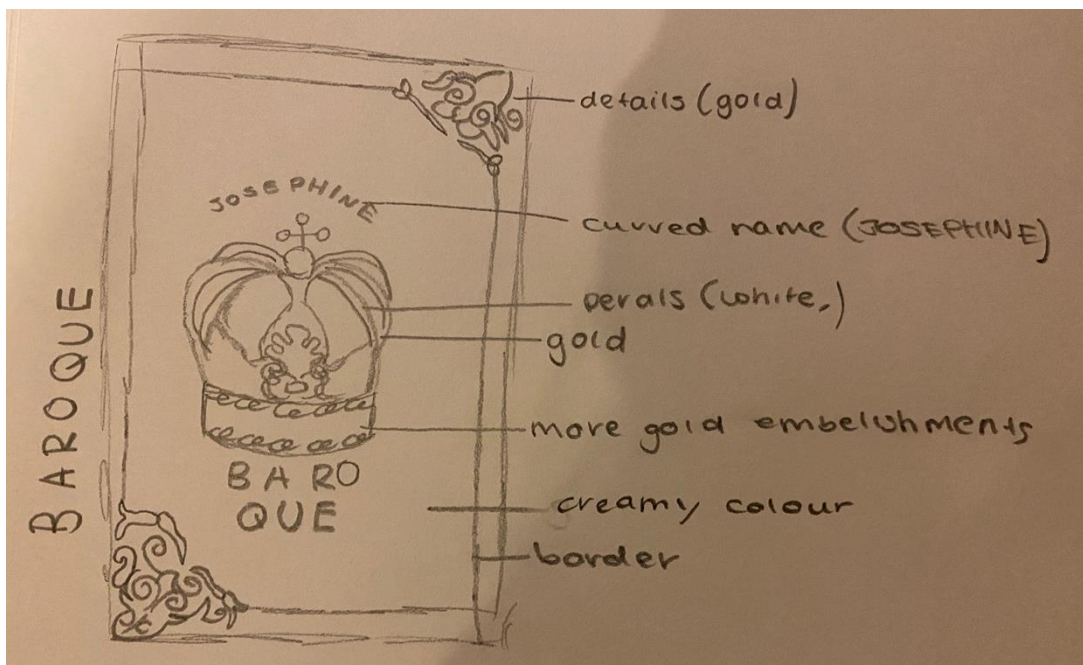 BAROQUE
JOSEPHINE
BARO
QUE
details (gold)
curved name (JOSEPHINE)
perals (white,)
gold
more gold embelishments
creamy colour
border